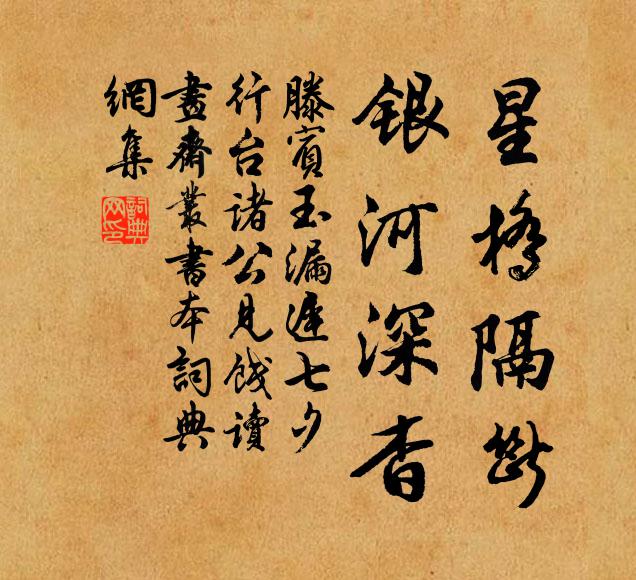 星橋隔斷
銀河深杳
滕賓玉漏遲七夕
行台諸公見餞讀
畫齋叢書本詞典
網集
詞典
网印